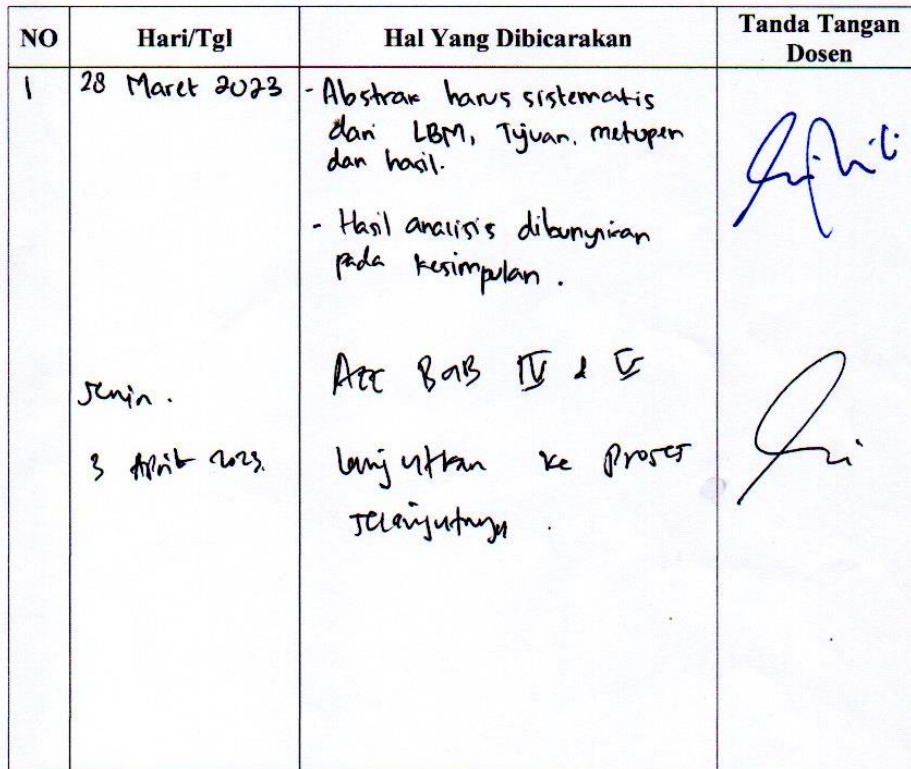 NO Hari/Tgl Hal Yang Dibicarakan Tanda Tangan
Dosen
1 28 Maret 2023 - Abstrak harus sistematis
dari LBM, Tujuan, metupen
dan hasil.
- Hasil analisis dibunyikan
pada kesimpulan.
Acc BAB IV & V
Senin.
3 April 2023. Lanjutkan ke proses
selanjutnya.